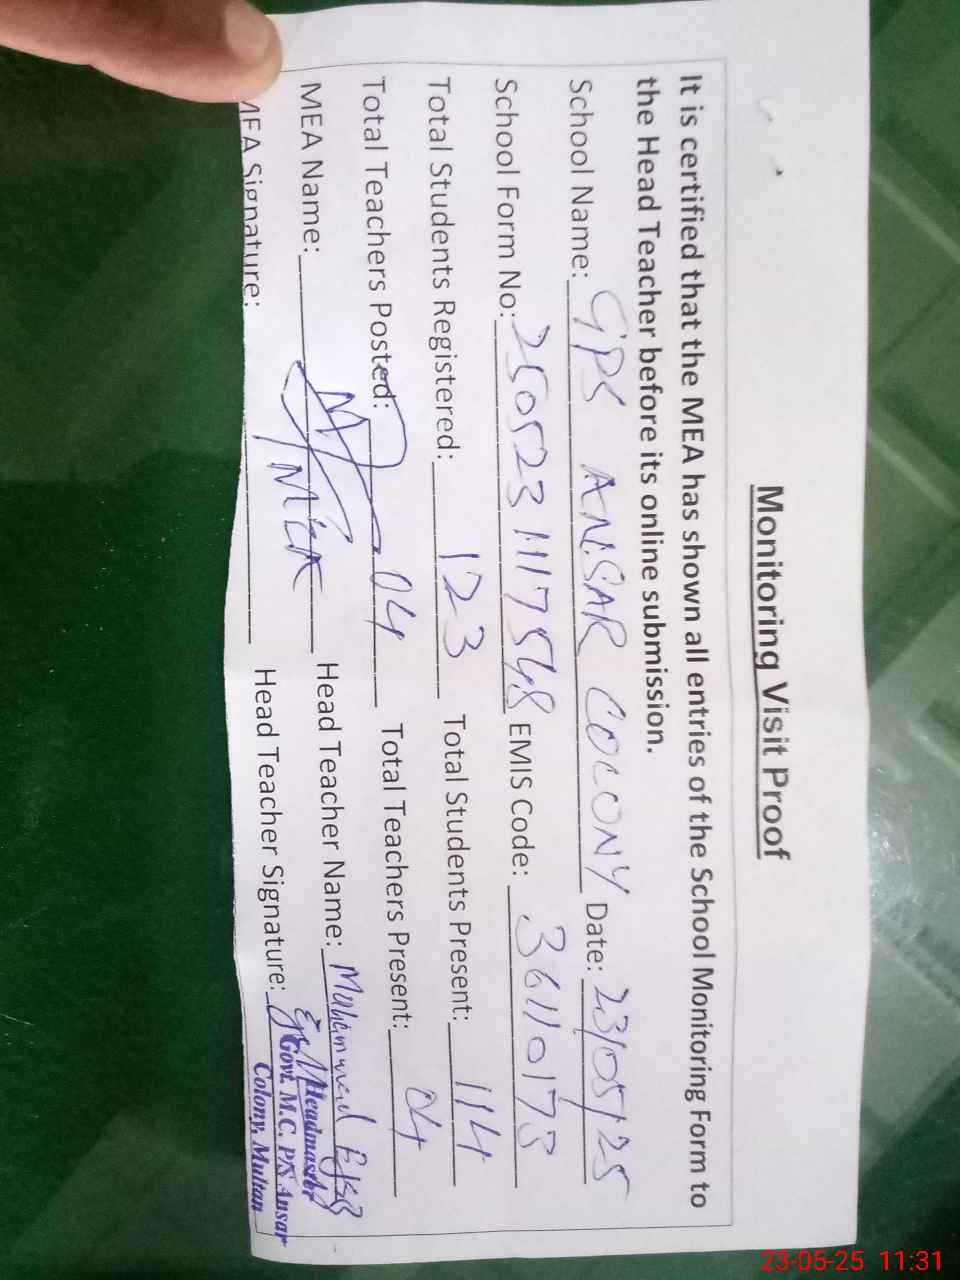 Monitoring Visit Proof
It is certified that the MEA has shown all entries of the School Monitoring Form to
the Head Teacher before its online submission.
School Name: GPS ANSAR COLONY Date: 23/05/25
School Form No: 25052311117548 EMIS Code: 36110173
Total Students Registered: 123 Total Students Present: 114
Total Teachers Posted: 04 Total Teachers Present: 04
MEA Name: Head Teacher Name: Muhammad
MEA Signature: MEA Head Teacher Signature:
Headmaster
Govt. M.C. P/S Ansar
Colony, Multan
23-05-25 11:31